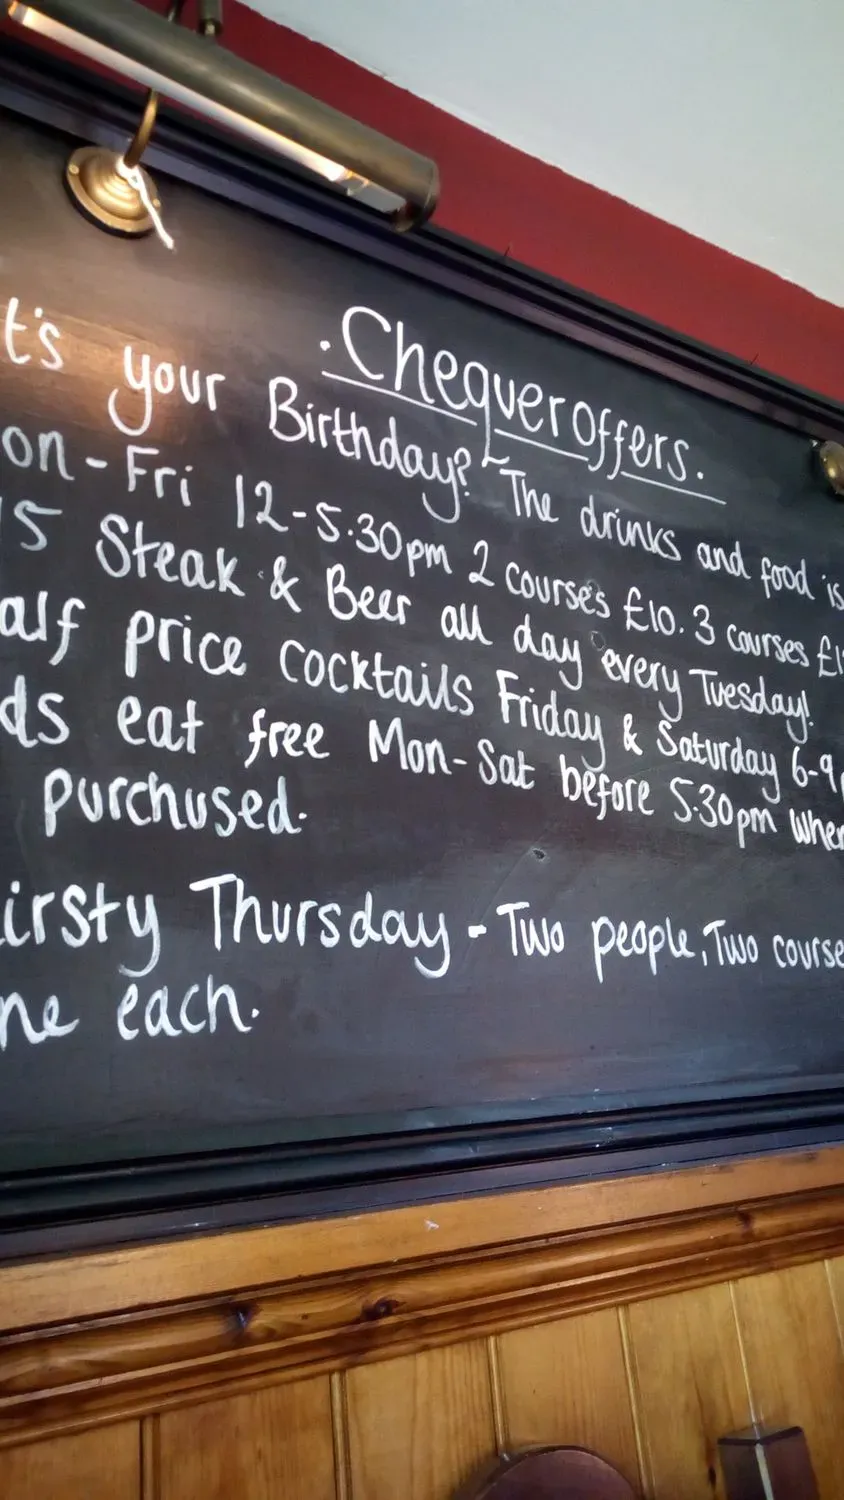 . Chequer offers.
t's your Birthday? The drinks and food is
on - Fri 12-5.30pm 2 courses £10. 3 courses £1
15 Steak & Beer all day every Tuesday!
alf price cocktails Friday & Saturday 6-9p
ds eat free Mon-Sat before 5.30pm when
purchused.
irsty Thursday - Two people, Two course
ne each.